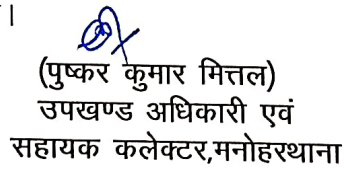 ।
(पुष्कर कुमार मित्तल)
उपखण्ड अधिकारी एवं
सहायक कलेक्टर,मनोहरथाना